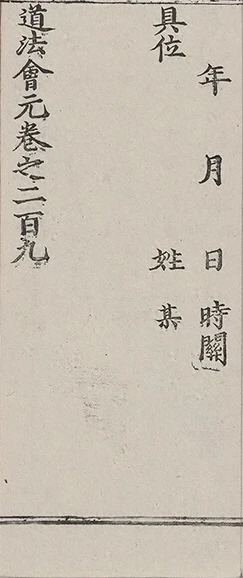 年月日時關
具位姓某
道法會元卷之二百九